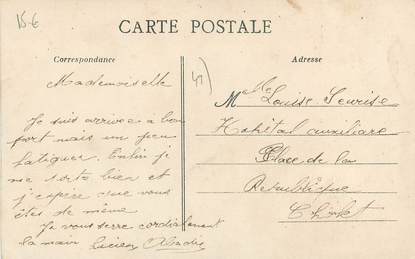 15€
CARTE POSTALE
Correspondance
Adresse
41)
Mademoiselle
Je suis arrivee a bon
port mais un peu
fatiguer. Enfin je
me sorts bien et
j'espère que vous
êtes de même
Je vous serre cordialement
la main Lucien
Mlle Louise
Hohital auxiliare
Place de la
Republique